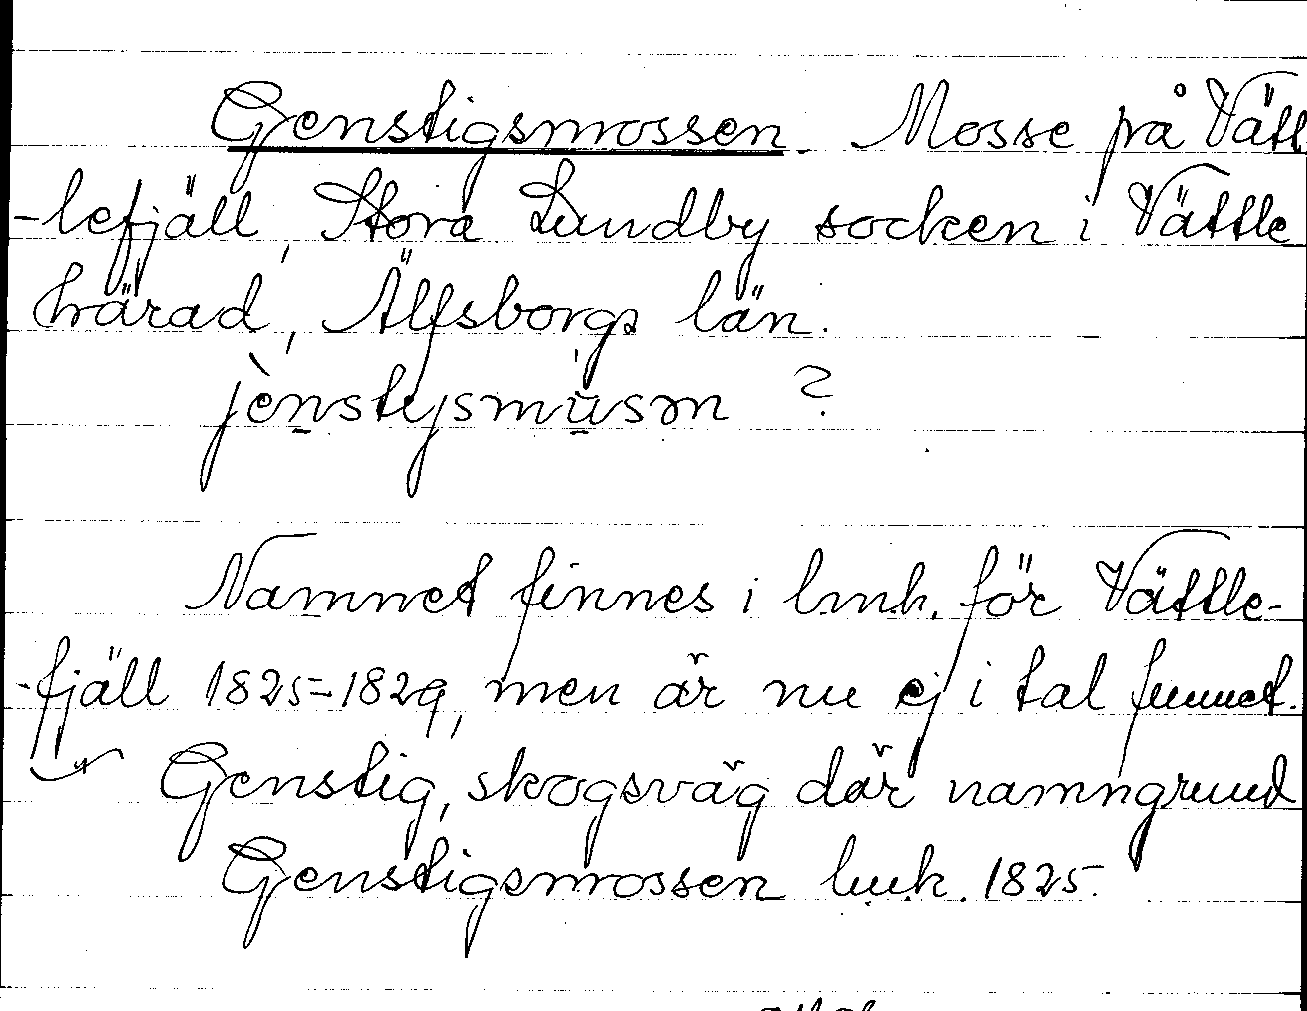 Genstigsmossen. Mosse på Vätt
-lefjäll, Stora Lundby socken i Vättle
härad, Älfsborgs län.
jènstigsmu̇sn ?
Namnet finnes i lmh. för Vättle-
-fjäll 1825-1829, men är nu ej i tal funnet.
Genstig, skogsväg där namngrund
Genstigsmossen lmh. 1825.